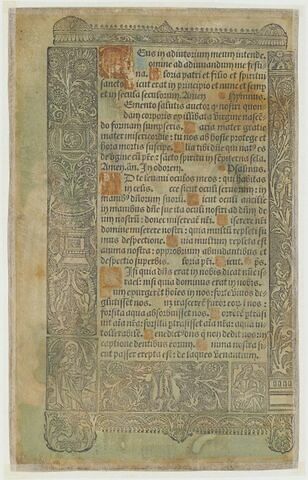 Eus in adiutorium meum intende.
omine ad adiuuandum me festi
na. loria patri et filio et spiritui
sancto icut erat in principio et nunc et semp
et in secula seculorum. Amen Hymnus.
Emento salutis auctor qd nostri quon
dam corporis ex illibata virgine nascē
do formam sumpseris. aria mater gratie
mater misericordie: tu nos ab hoste protege et
hora mortis suscipe. lia tibi dñe qui nat' es
de v̄gine cū p̄re: et sācto spiritu in sēpiterna secla.
Amen. añ. In odorem. Psalmus.
D te leuaui oculos meos: qui habitas
in celis. cce sicut oculi seruorum: in
manib' dñorum suorū. icut oculi ancille
in manibus dñe sue: ita oculi nostri ad dñm deū
nostrū: donec misereat nr̄i. iserere nr̄i
domine miserere nostri: quia multū repleti su
mus despectione. uia multum repleta est
anima nostra: opprobrium abundantibus et
despectio superbis. loria pr̄i. icut. p̄s.
Isi quia dñs erat in nobis dicat nūc is
rael: nisi quia dominus erat in nobis.
um exurgerēt hoīes in nos: forte viuos de
glutissēt nos. um irasceret furor eorū ī nos:
forsitā aqua absorbuisset nos. orrētē ptrāsi
uit aīa nr̄a: forsitā ptrāsisset aīa nr̄a: aquā in
tollerabilē. enedict' dñs q̄ non dedit nos: in
captione dentibus eorum. nima nostra si
cut passer erepta est: de laqueo venantium.